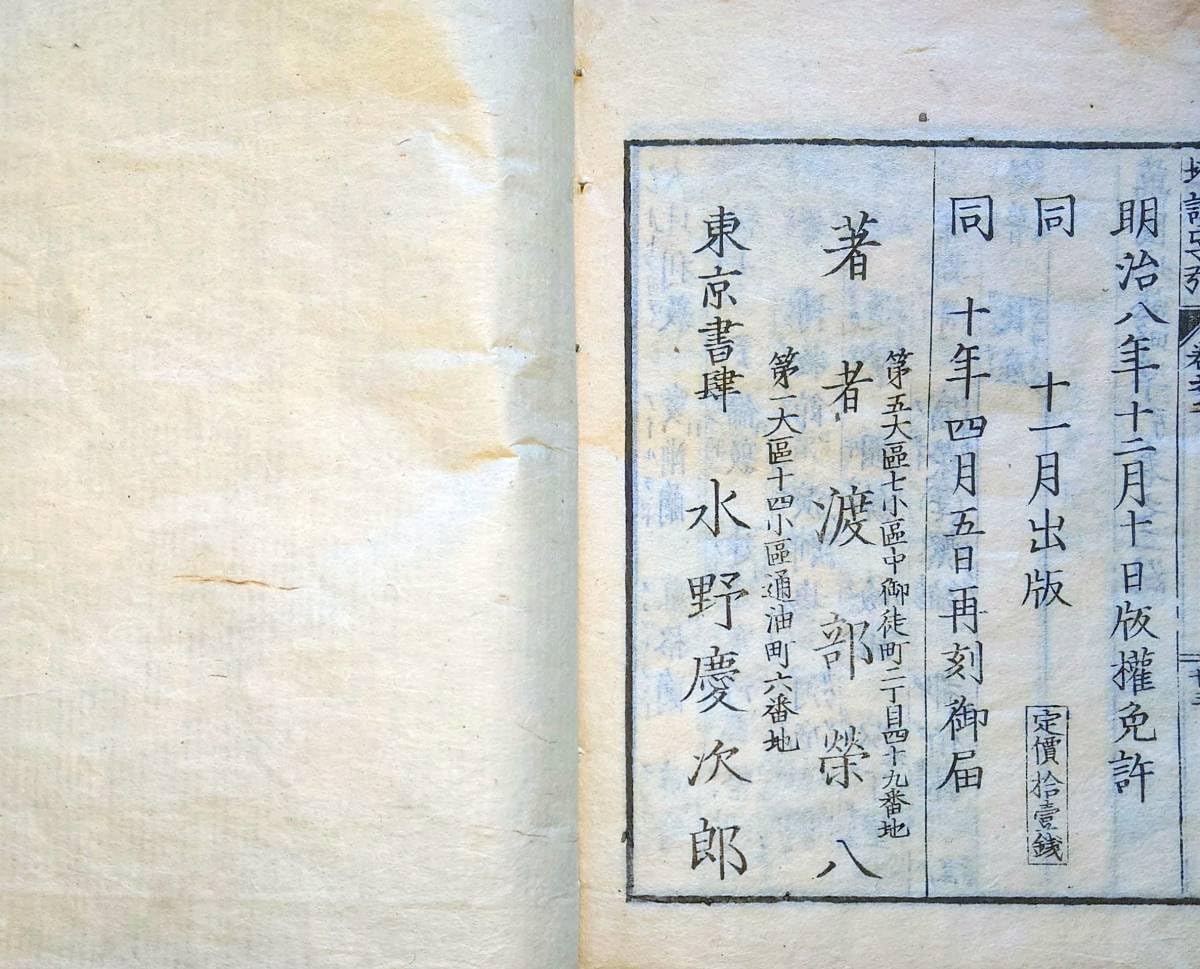 明治八年十二月十日版權免許
同 十一月出版
定價拾壹錢
同 十年四月五日再刻御届
第五大區七小區中御徒町二丁目四十九番地
著者 渡部榮八
第一大區十四小區通油町六番地
東京書肆 水野慶次郎